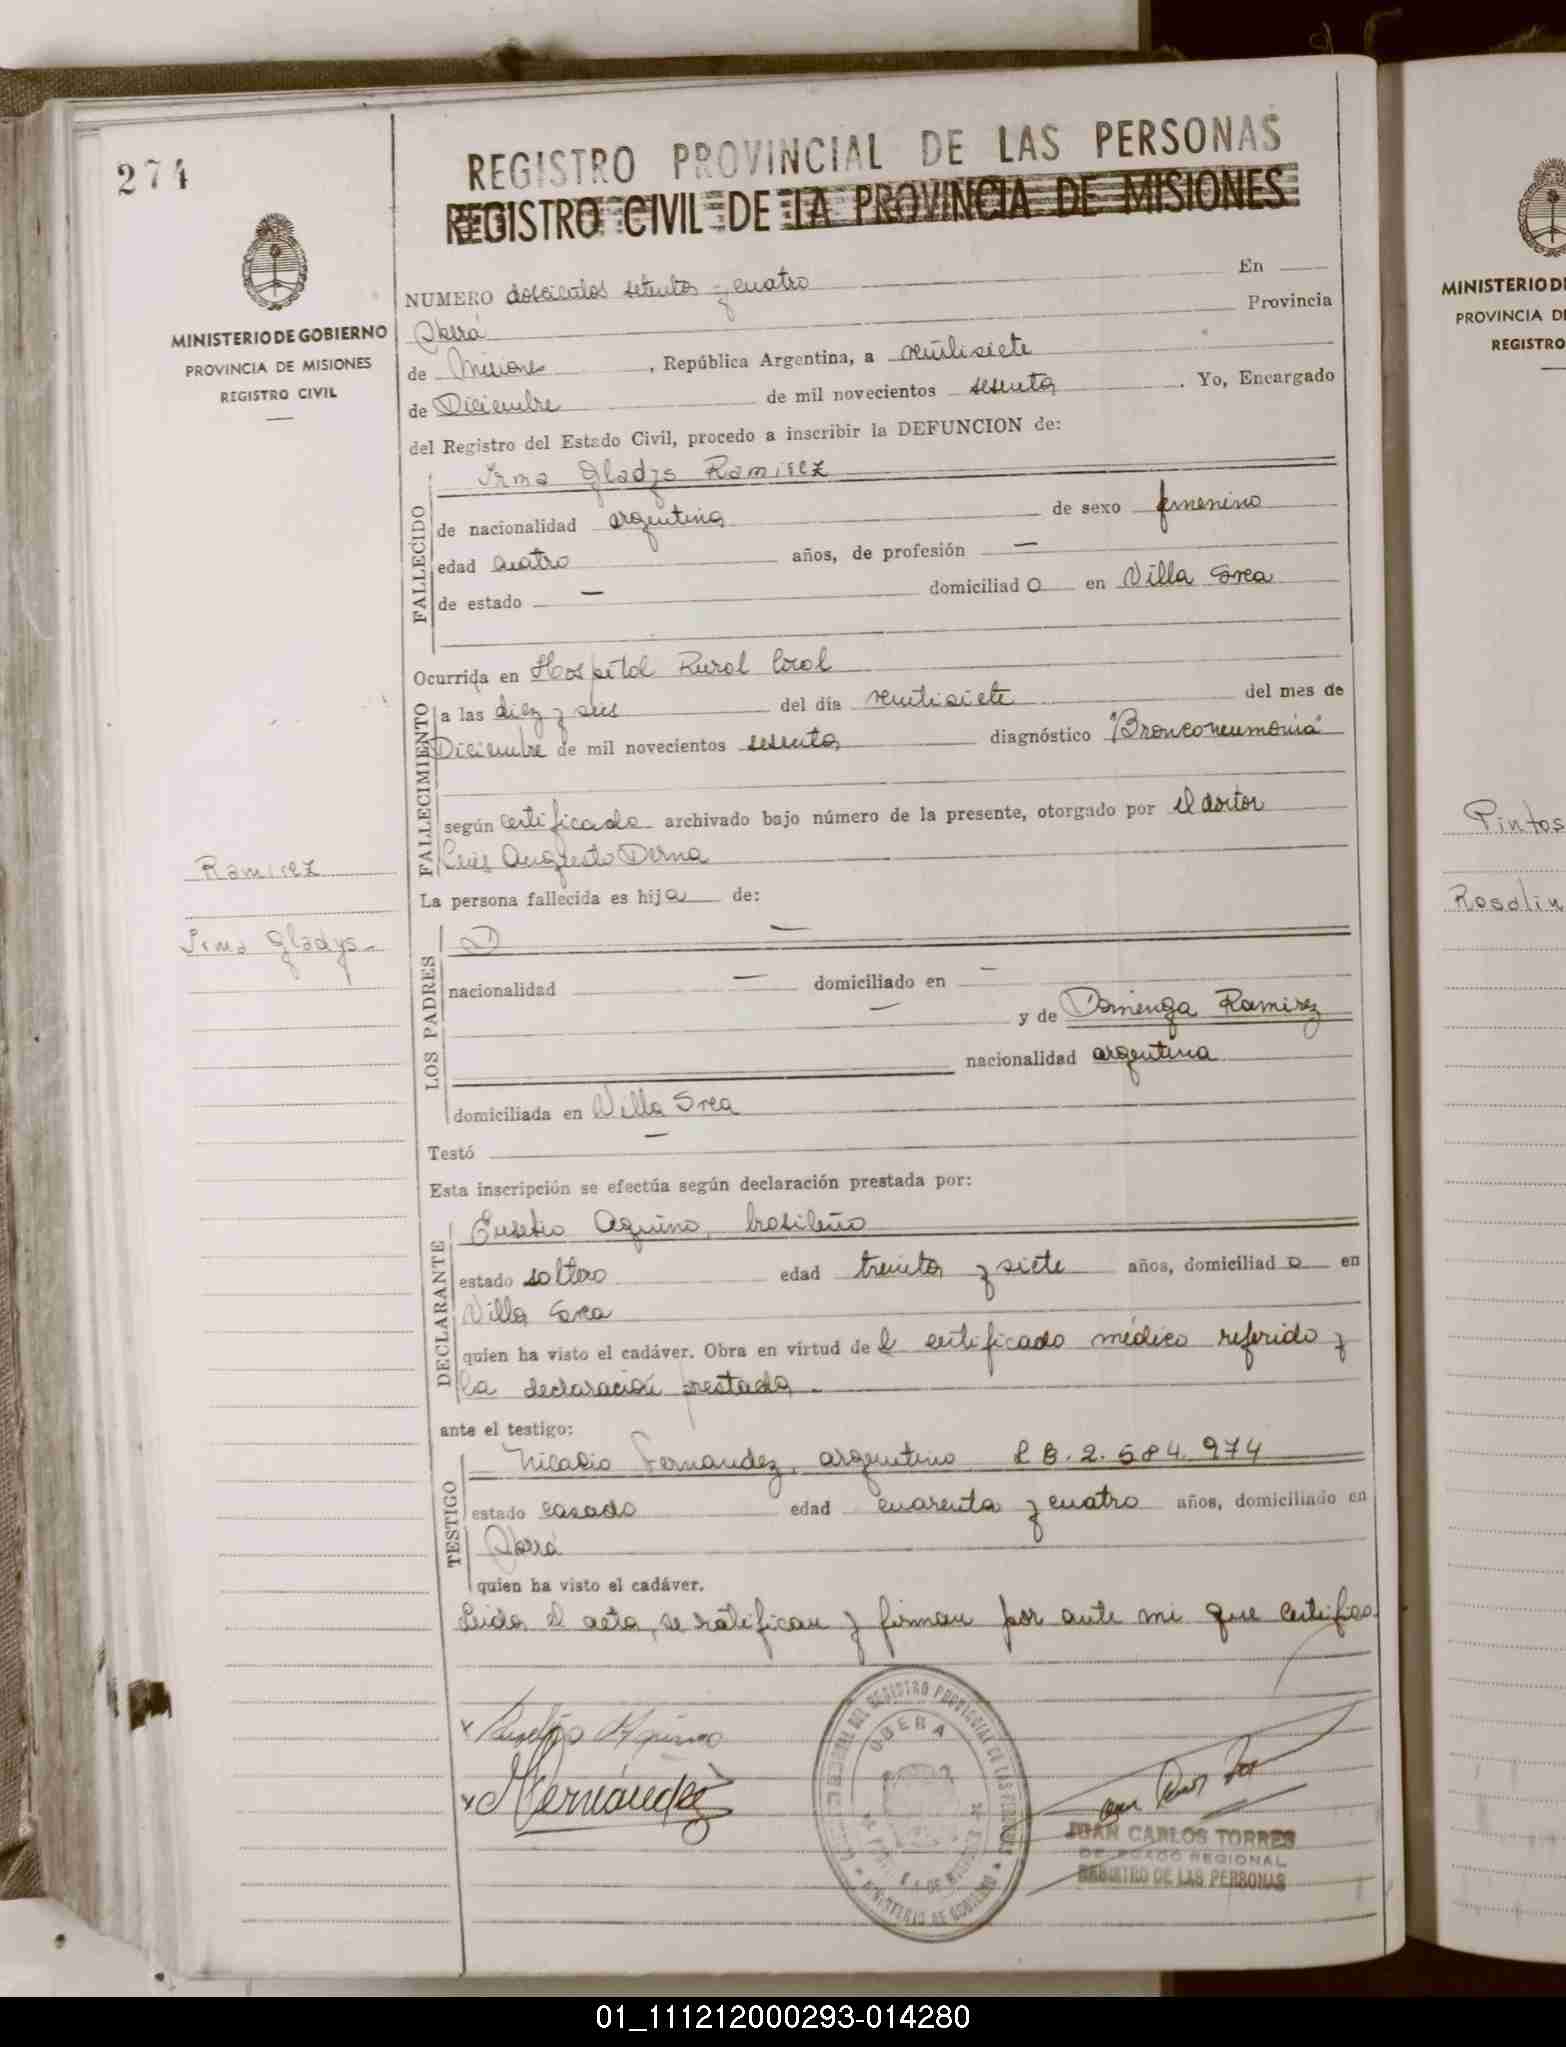 274
REGISTRO PROVINCIAL DE LAS PERSONAS
REGISTRO CIVIL DE LA PROVINCIA DE MISIONES
MINISTERIO DE GOBIERNO
PROVINCIA DE MISIONES
REGISTRO CIVIL
NUMERO doscientos setenta y cuatro En
Oberá Provincia
de Misiones, República Argentina, a veintisiete
de Diciembre de mil novecientos sesenta. Yo, Encargado
del Registro del Estado Civil, procedo a inscribir la DEFUNCION de:
FALLECIDO
Irma Gladys Ramirez
de nacionalidad argentina de sexo femenino
edad cuatro años, de profesión —
de estado — domiciliado en Villa Svea
FALLECIMIENTO
Ocurrida en Hospital Rural local
a las diez y seis del día veintisiete del mes de
Diciembre de mil novecientos sesenta diagnóstico "Bronconeumonia"
según certificado archivado bajo número de la presente, otorgado por el doctor
Luis Augusto Derna
Ramirez
Irma Gladys
La persona fallecida es hija de:
LOS PADRES
D —
nacionalidad — domiciliado en —
— y de Dominga Ramirez
nacionalidad argentina
domiciliada en Villa Svea
Testó —
Esta inscripción se efectúa según declaración prestada por:
DECLARANTE
Eusebio Aquino, brasileño
estado soltero edad treinta y siete años, domiciliado en
Villa Svea
quien ha visto el cadáver. Obra en virtud del certificado médico referido y
la declaración prestada.
ante el testigo:
TESTIGO
Nicasio Fernandez, argentino L E. 2.584.974
estado casado edad cuarenta y cuatro años, domiciliado en
Oberá
quien ha visto el cadáver.
Leida el acta, se ratifican y firman por ante mi que certifico
x Eusebio Aquino
x NFernández
OBERA
MINISTERIO DE GOBIERNO
JUAN CARLOS TORRES
DELEGADO REGIONAL
REGISTRO DE LAS PERSONAS
MINISTERIO D
PROVINCIA D
REGISTRO
Pintos
Rosalin
01_111212000293-014280